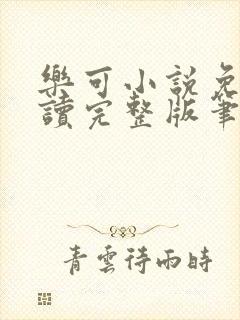 樂可小說免
讀完整版筆
青雲待雨時